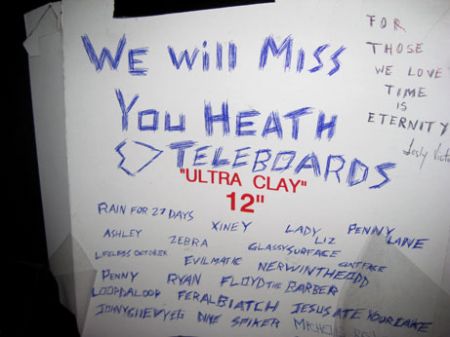 WE WILL MISS
YOU HEATH
TELEBOARDS
"ULTRA CLAY"
12"
FOR
THOSE
WE LOVE
TIME
IS
ETERNITY
RAIN FOR 27 DAYS XINEY LADY LIZ PENNY LANE
ASHLEY ZEBRA GLASSYSURFACE
LIFELESS OCTOBER EVILMATIC NERWINTHEODD CUNTFACE
PENNY RYAN FLOYD THE BARBER
LOOPDALOOP FERALBIATCH JESUS ATE YOUR CAKE
SPIKER